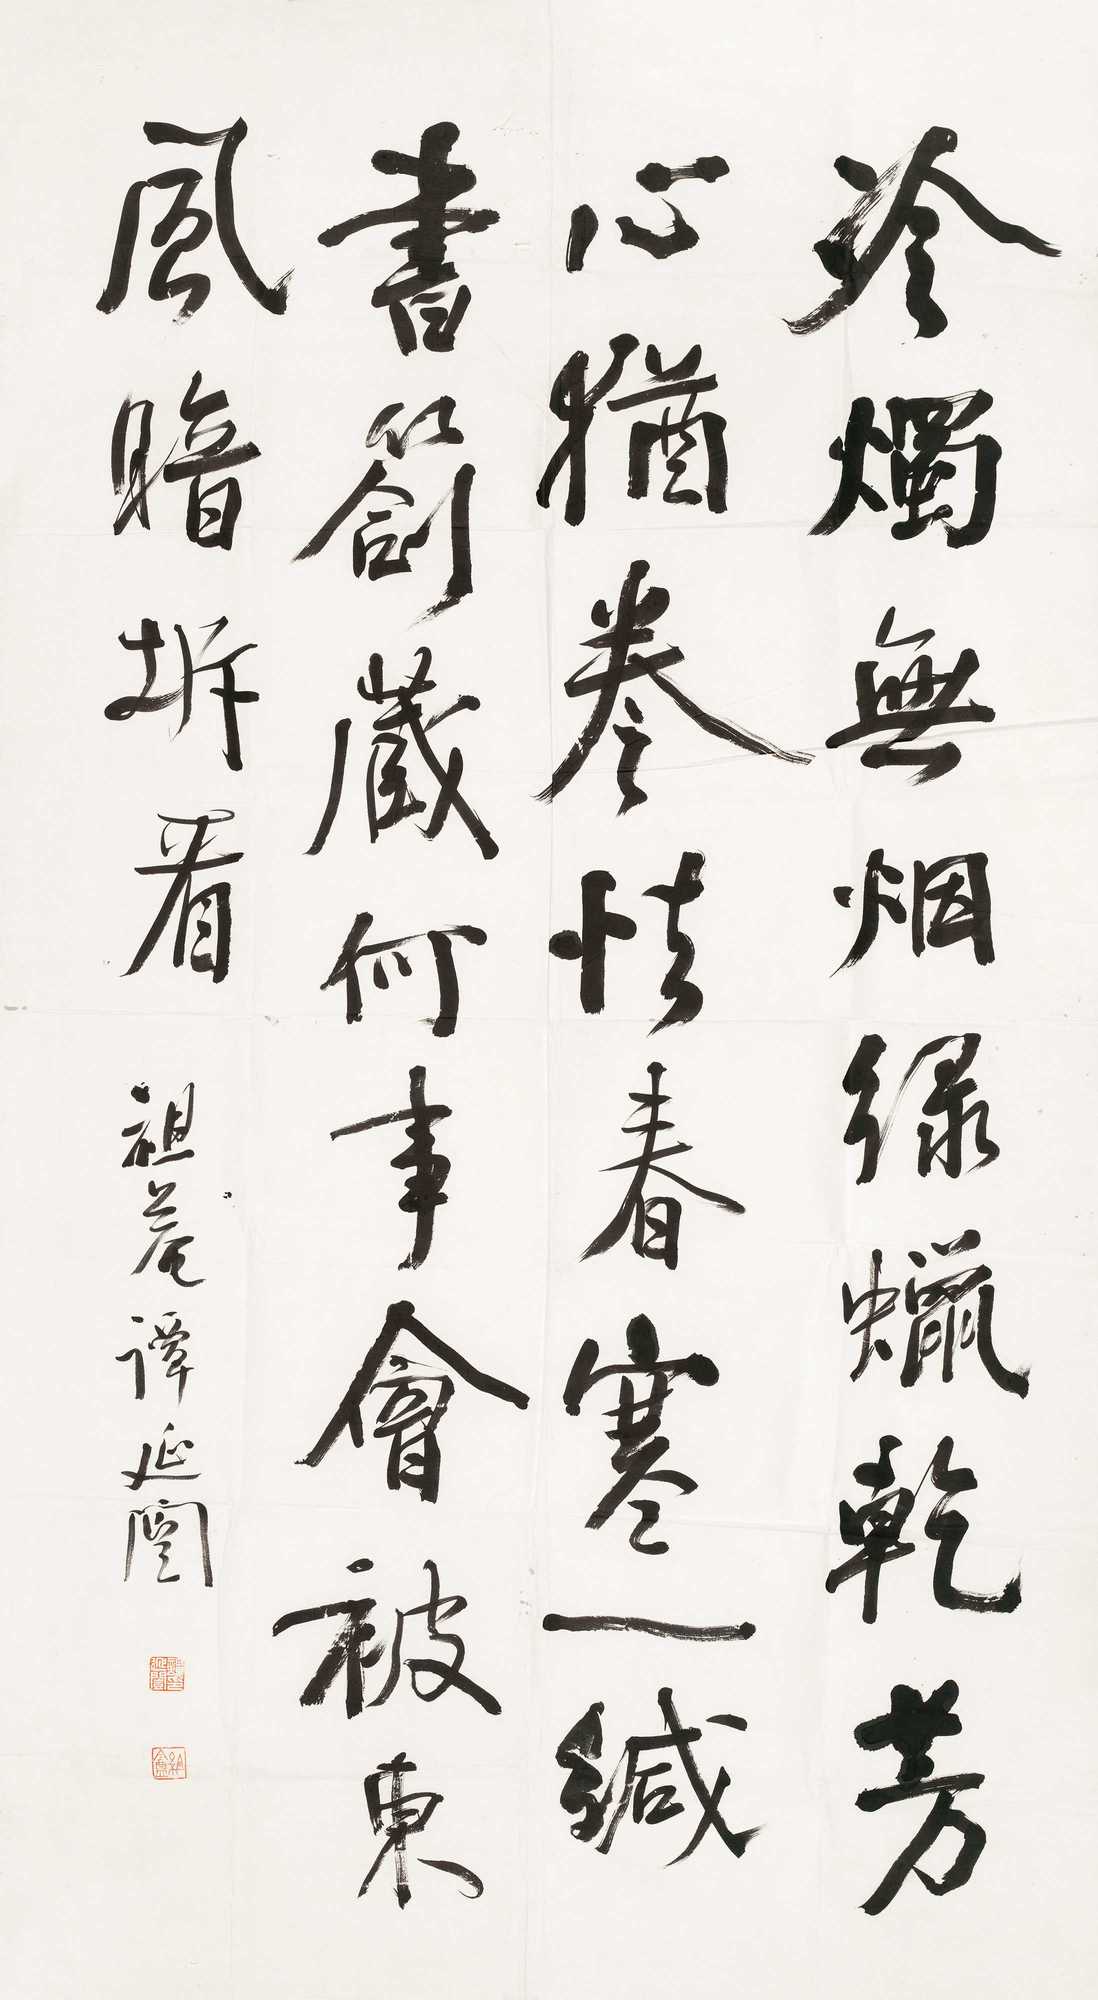 冷燭無烟緑蠟乾芳
心猶卷怯春寒一緘
書箚藏何事會被東
風暗拆看 祖菴譚延闓